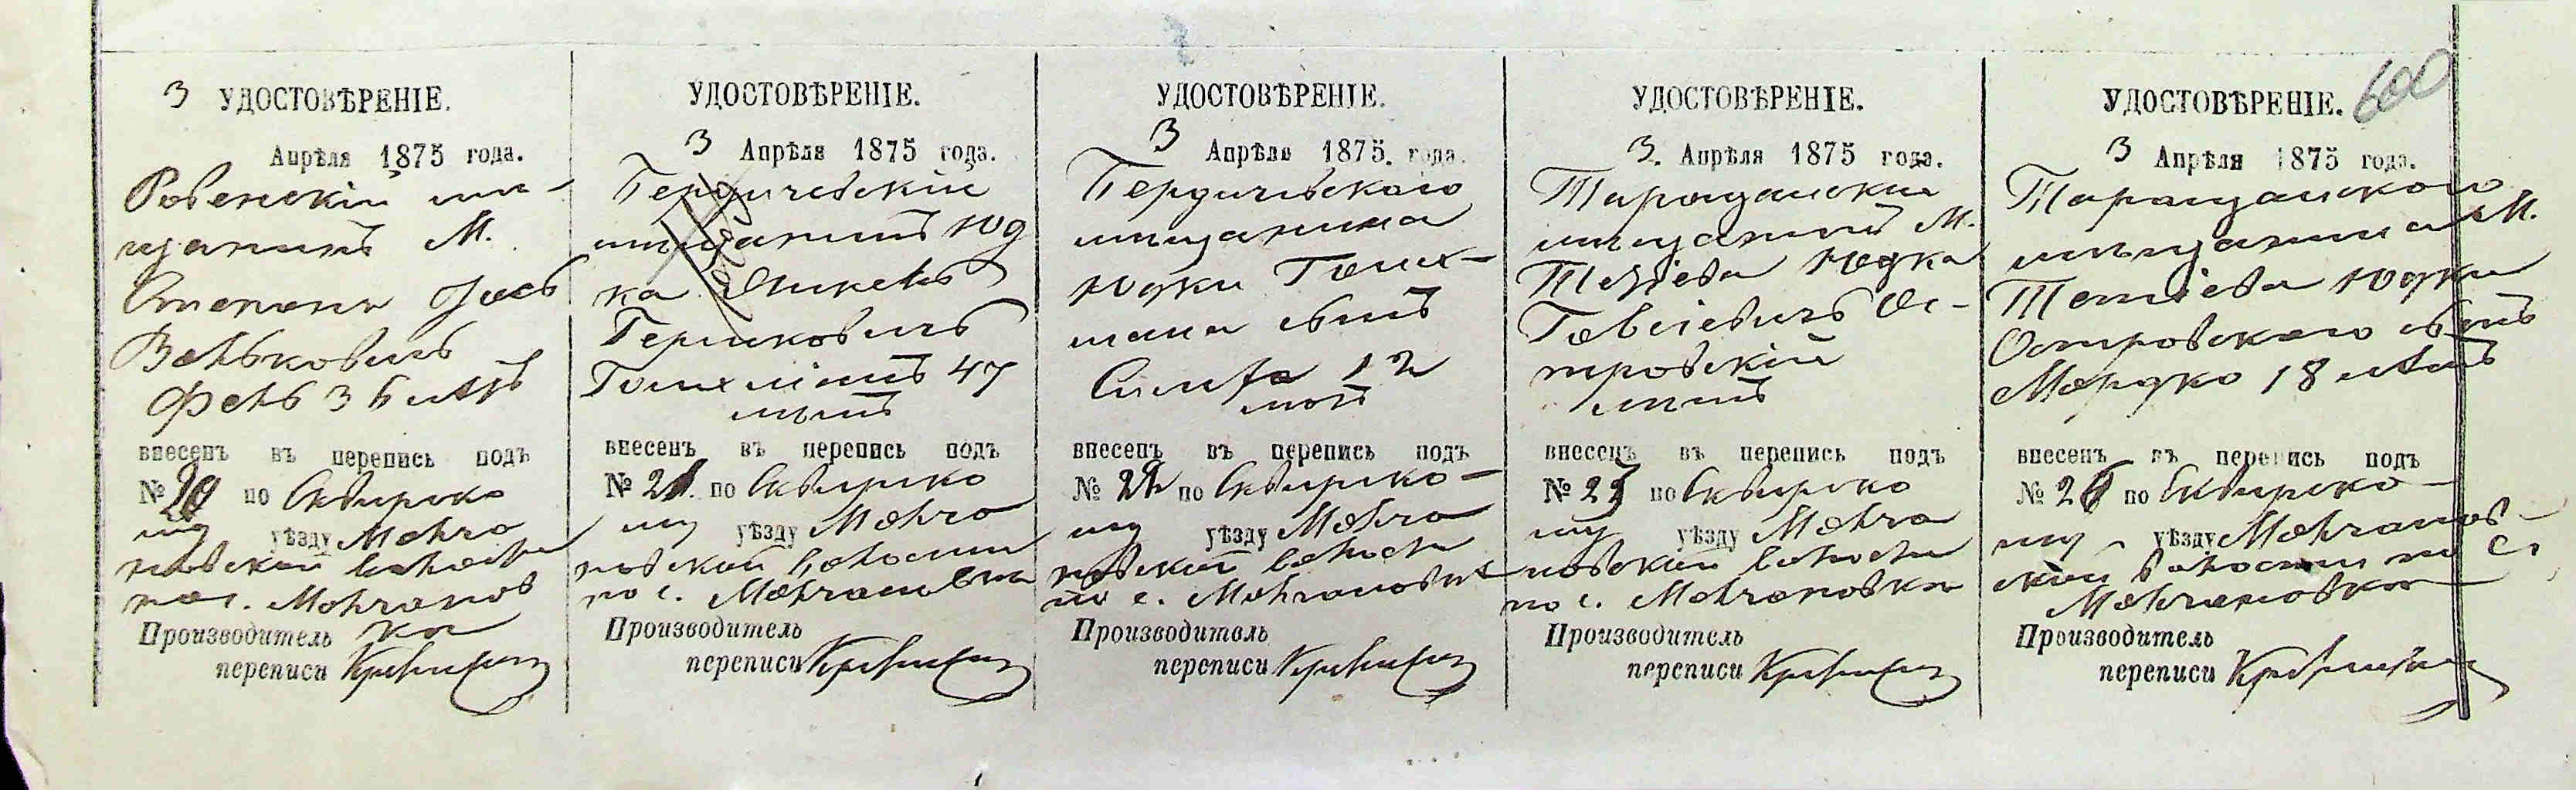 600
3 УДОСТОВѢРЕНІЕ.
Апрѣля 1875 года.
Ровенскій мѣ-
щанинъ М.
Степани Іось
Вольковичъ
Фель 36 лѣтъ
внесенъ въ перепись подъ
№ 20 по Сквирско
му уѣзду Молча
новской волости
по с. Молчанов
ка
Производитель
переписи
УДОСТОВѢРЕНІЕ.
3 Апрѣля 1875 года.
Бердичевскій
мѣщанинъ Юд
ка
Гершковичъ
47
лѣтъ
внесенъ въ перепись подъ
№ 21. по Сквирско
му уѣзду Молча
новской волости
по с. Молчановка
Производитель
переписи
УДОСТОВѢРЕНІЕ.
3 Апрѣля 1875. года.
Бердичевского
мѣщанина
Юдки
сынъ
Симха 12
лѣтъ
внесенъ въ перепись подъ
№ 22 по Сквирско-
му уѣзду Молча
новской волости
по с. Молчановка
Производитель
переписи
УДОСТОВѢРЕНІЕ.
3. Апрѣля 1875 года.
Таращанскій
мѣщанинъ М.
Тетіева Юдка
Товіевичъ Ос-
тровскій
лѣтъ
внесенъ въ перепись подъ
№ 23 по Сквирско
му уѣзду Молча
новской волости
по с. Молчановка
Производитель
переписи
УДОСТОВѢРЕНІЕ.
3 Апрѣля 1875 года.
Таращанского
мѣщанина М.
Тетіева Юдки
Островского сынъ
Мордко 18 лѣтъ
внесенъ въ перепись подъ
№ по Сквирско-
му уѣзду Молчанов-
ской волости по с.
Молчановка
Производитель
переписи